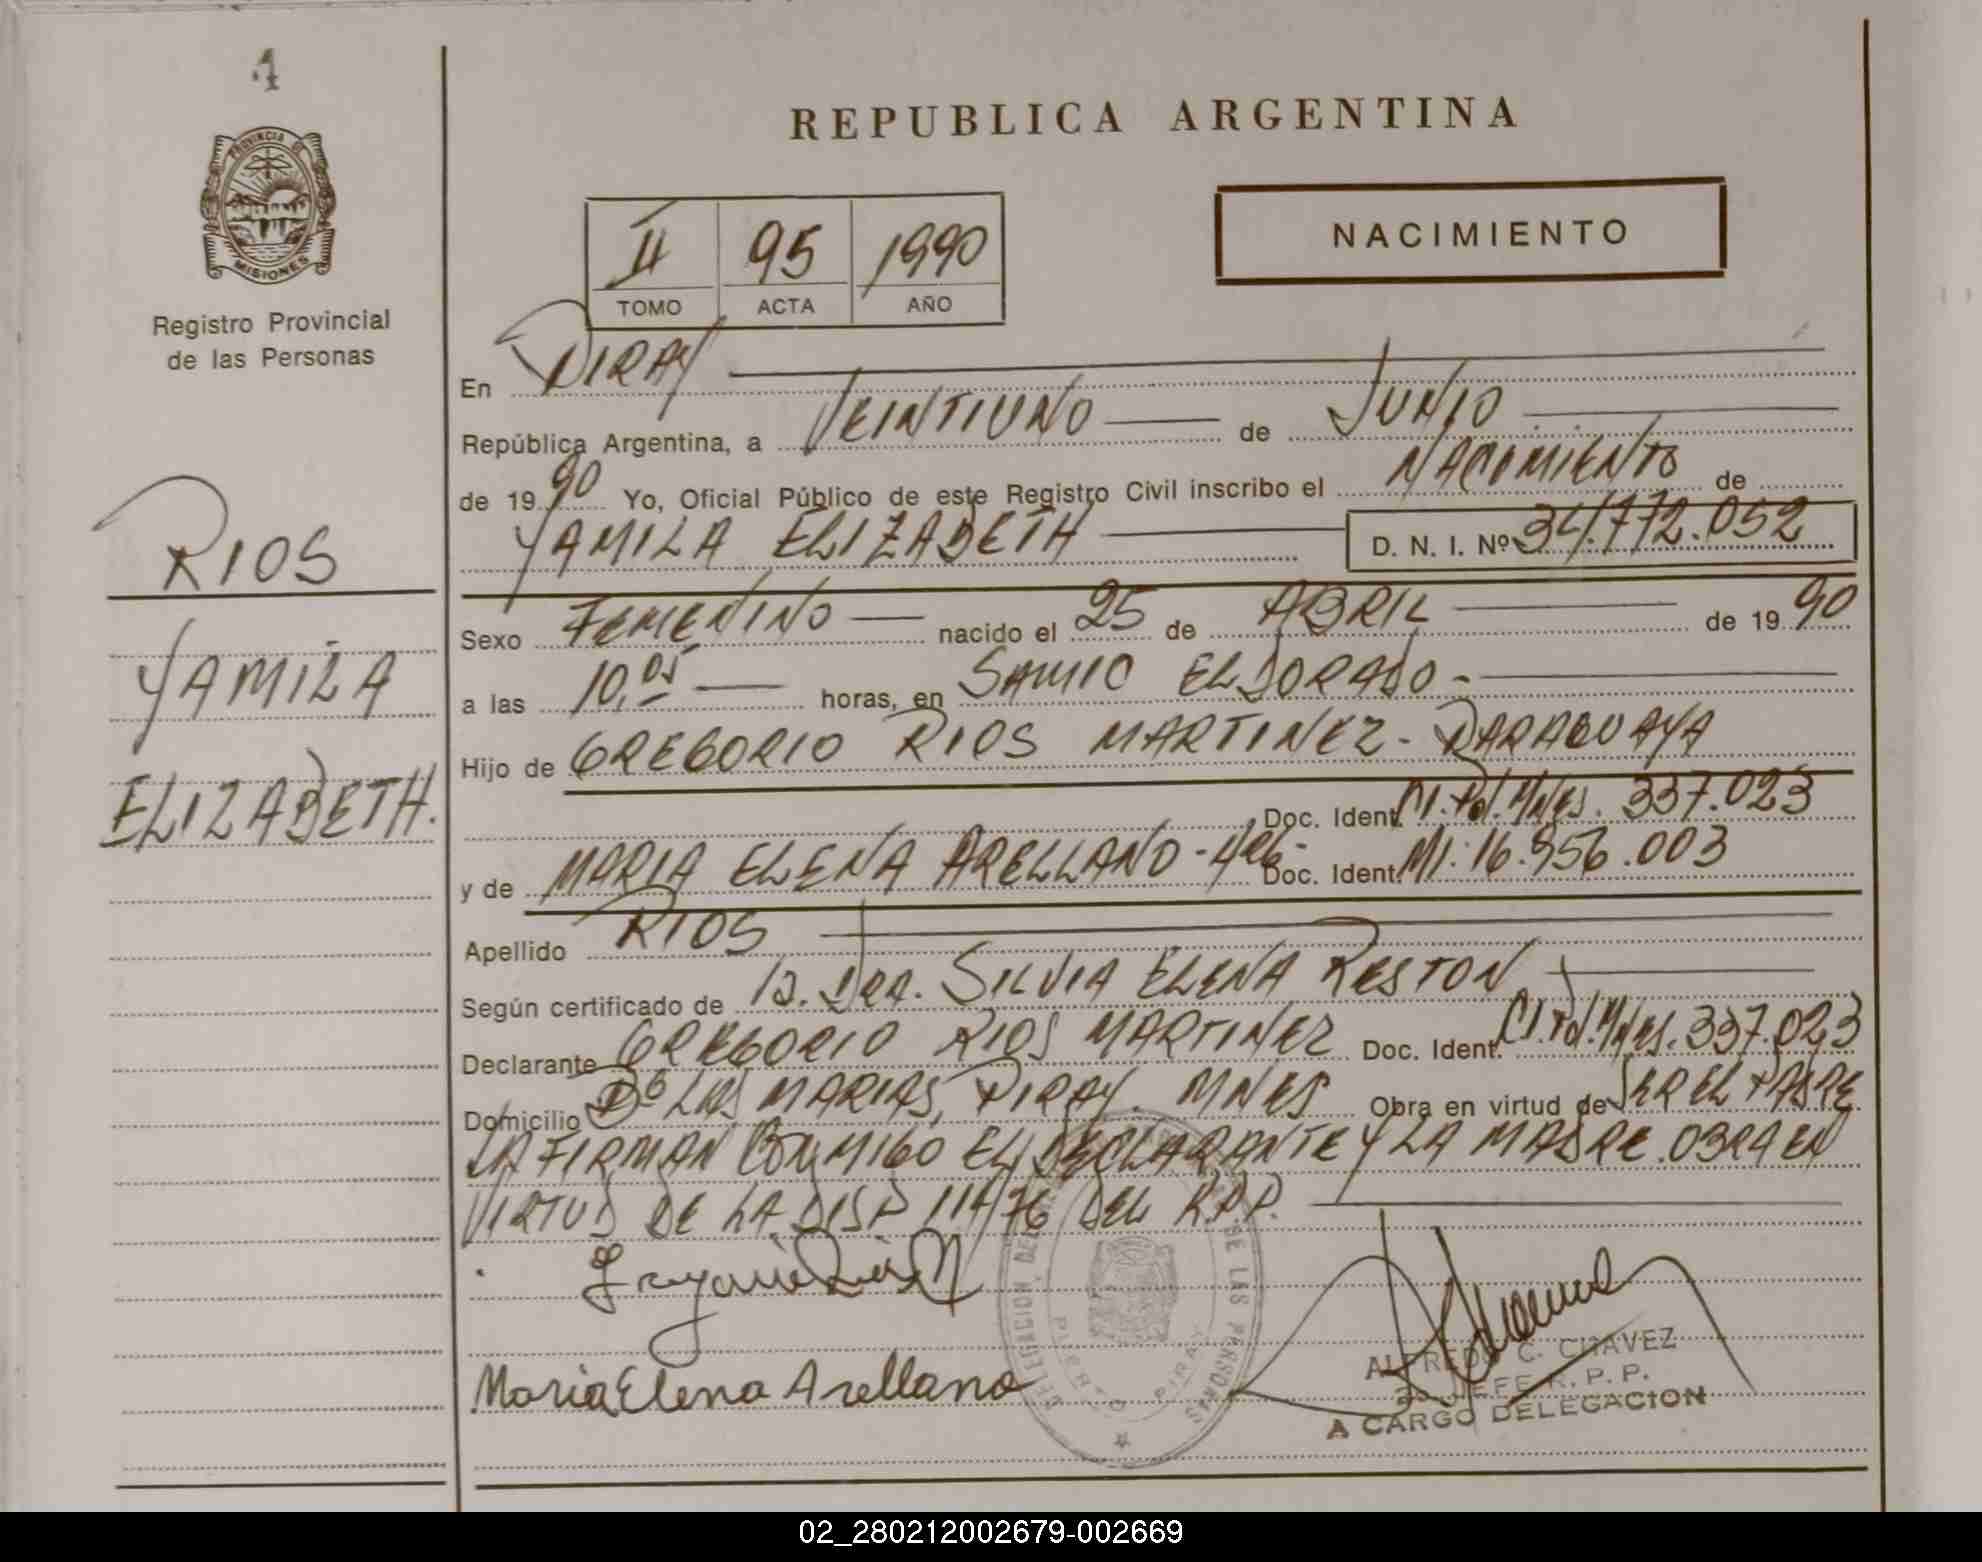 4
PROVINCIA DE
MISIONES
Registro Provincial
de las Personas
RIOS
YAMILA
ELIZABETH.
REPUBLICA ARGENTINA
II 95 1990
TOMO ACTA AÑO
NACIMIENTO
En PIRAY
República Argentina, a VEINTIUNO de JUNIO
de 1990 Yo, Oficial Público de este Registro Civil inscribo el NACIMIENTO de
YAMILA ELIZABETH D. N. I. Nº 34.772.052
Sexo FEMENINO nacido el 25 de ABRIL de 1990
a las 10,05 horas, en SAMIC ELDORADO -
Hijo de GREGORIO RIOS MARTINEZ - PARAGUAYA
Doc. Ident. CI. Pol. Mnes. 337.023
y de MARIA ELENA ARELLANO - ARG - Doc. Ident. MI: 16.956.003
Apellido RIOS
Según certificado de la. DRA. SILVIA ELENA RESTON
Declarante GREGORIO RIOS MARTINEZ Doc. Ident. CI. Pol. Mnes. 337.023
Domicilio Bº LAS MARIAS, PIRAY. MNES Obra en virtud de SER EL PADRE
LA FIRMAN CONMIGO EL DECLARANTE Y LA MADRE. OBRA EN
VIRTUD DE LA DISP 114/76 DEL R.P.P.
Maria Elena Arellano
DELEGACION DE LAS PERSONAS
PUERTO PIRAY
ALFREDO C. CHAVEZ
2o JEFE R. P. P.
A CARGO DELEGACION
02_280212002679-002669